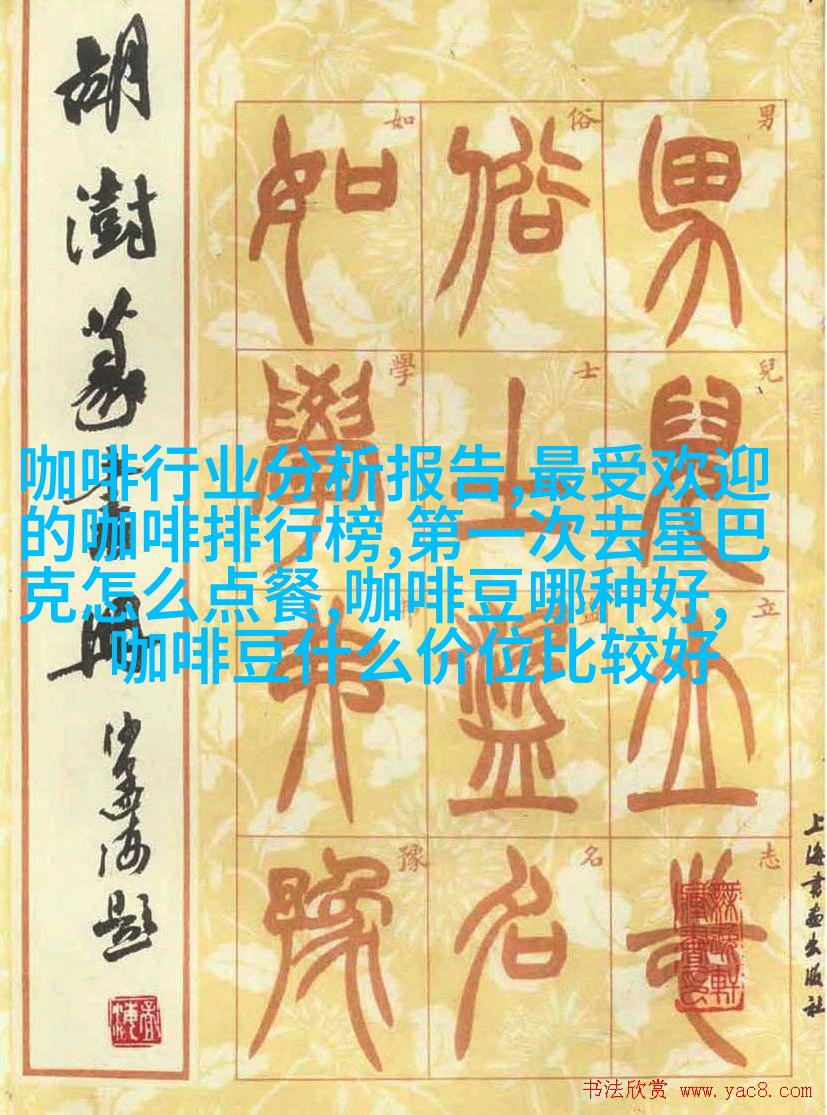 胡澍篆書冊
沙孟海題
男兒立志
俗士盜名
如學弗豫
男
兒
立
志
俗
士
名
如
學
豫
上海書畫出版社
咖啡行业分析报告,最受欢迎
的咖啡排行榜,第一次去星巴
克怎么点餐,咖啡豆哪种好,
咖啡豆什么价位比较好
书法欣赏 www.yac8.com